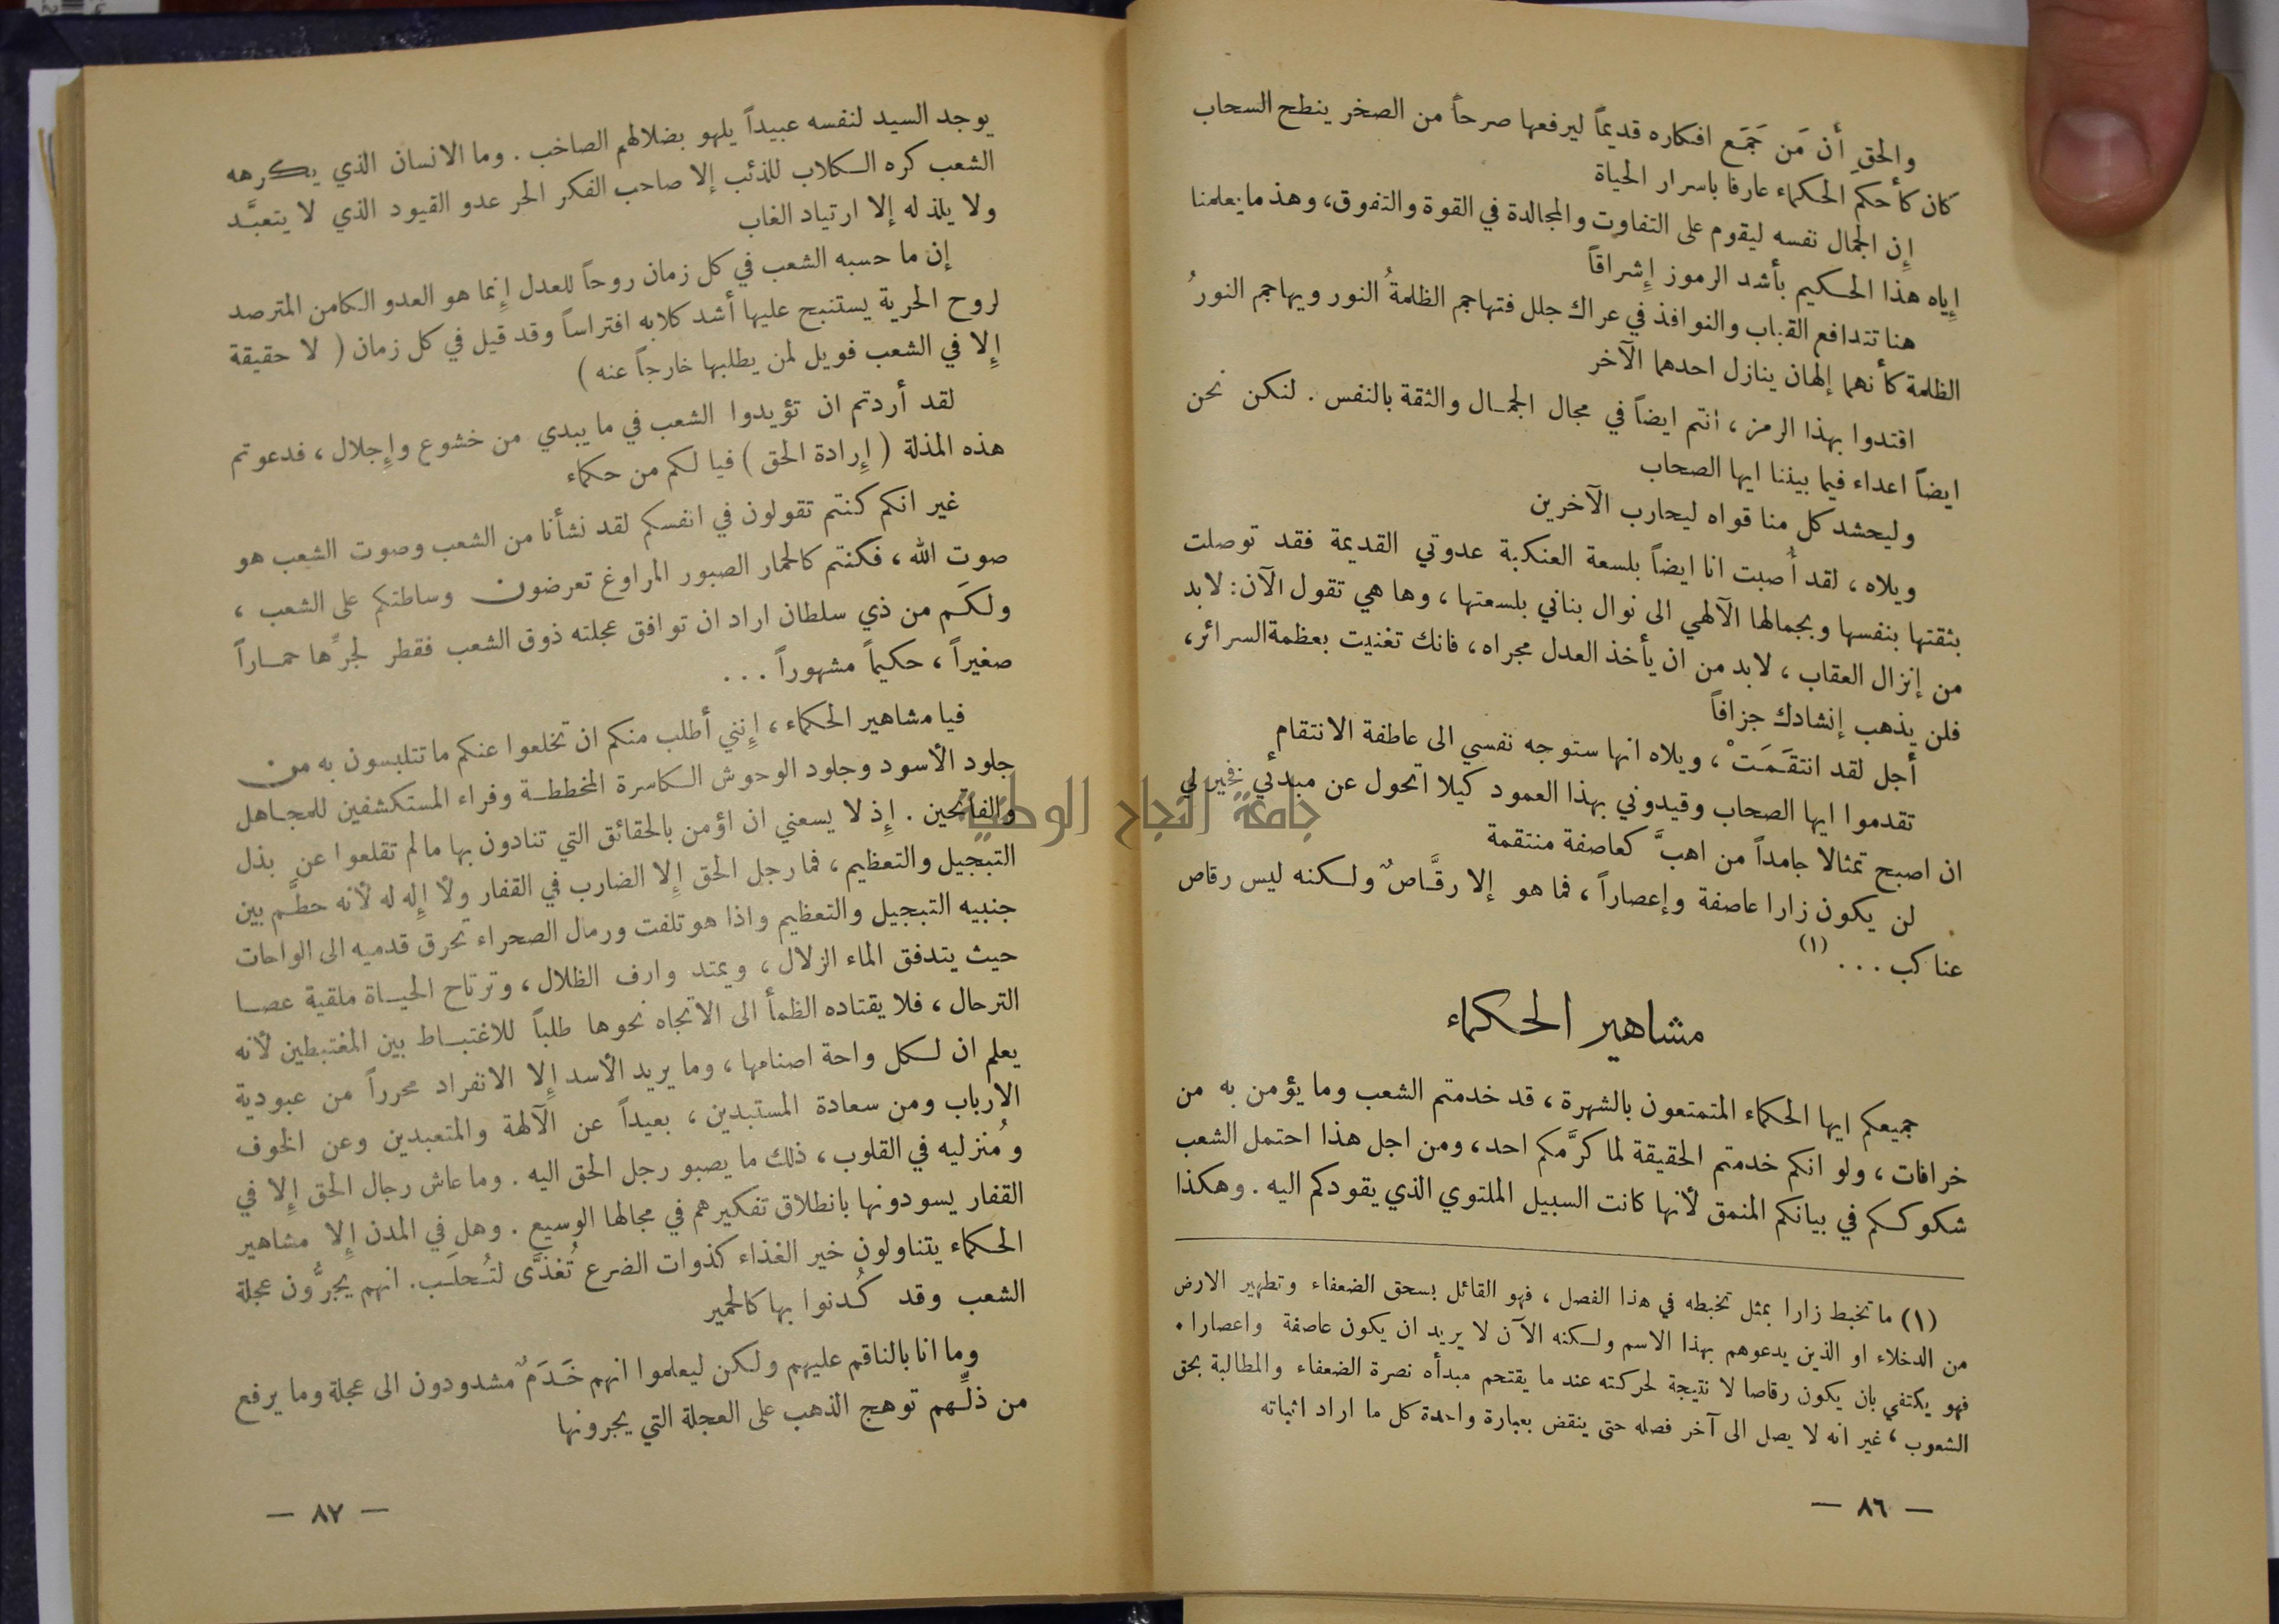 والحقِ أن مَن جَمَع افكاره قديماً ليرفعها صرحاً من الصخر ينطح السحاب
كان كأحكم الحكماء عارفا باسرار الحياة
إِن الجمال نفسه ليقوم على التفاوت والمجالدة في القوة والتفوق، وهذ ما يعلمنا
إِياه هذا الحكيم بأشد الرموز إِشراقاً
هنا تتدافع القباب والنوافذ في عراك جلل فتهاجم الظلمةُ النور ويهاجم النورُ
الظلمة كأنهما إلهان ينازل احدهما الآخر
اقتدوا بهذا الرمز ، انتم ايضاً في مجال الجمال والثقة بالنفس . لنكن نحن
ايضاً اعداء فيما بيننا ايها الصحاب
وليحشد كل منا قواه ليحارب الآخرين
ويلاه ، لقد أُصبت انا ايضاً بلسعة العنكبة عدوتي القديمة فقد توصلت
بثقتها بنفسها وبجمالها الآلهي الى نوال بناني بلسعتها ، وها هي تقول الآن : لابد
من إنزال العقاب ، لابد من ان يأخذ العدل مجراه ، فانك تغنيت بعظمة السرائر،
فلن يذهب إنشادك جزافاً
أجل لقد انتقَمَتْ ، ويلاه انها ستوجه نفسي الى عاطفة الانتقام
تقدموا ايها الصحاب وقيدوني بهذا العمود كيلا اتحول عن مبدئي فخير لي
ان اصبح تمثالا جامداً من اهبَّ كعاصفة منتقمة
لن يكون زارا عاصفة وإعصاراً ، فما هو إلا رقَّاصٌ ولكنه ليس رقاص
عناكب . . . (١)
مشاهير الحكماء
جميعكم ايها الحكماء المتمتعون بالشهرة ، قد خدمتم الشعب وما يؤمن به من
خرافات ، ولو انكم خدمتم الحقيقة لما كرَّمكم احد ، ومن اجل هذا احتمل الشعب
شكوككم في بيانكم المنمق لأنها كانت السبيل الملتوي الذي يقودكم اليه . وهكذا
(١) ما تخبط زارا بمثل تخبطه في هذا الفصل ، فهو القائل بسحق الضعفاء وتطهير الارض
من الدخلاء او الذين يدعوهم بهذا الاسم ولكنه الآن لا يريد ان يكون عاصفة واعصارا .
فهو يكتفي بان يكون رقاصا لا نتيجة لحركته عند ما يقتحم مبدأه نصرة الضعفاء والمطالبة بحق
الشعوب ، غير انه لا يصل الى آخر فصله حتى ينقض بعبارة واحدة كل ما اراد اثباته
— ٨٦ —
يوجد السيد لنفسه عبيداً يلهو بضلالهم الصاخب . وما الانسان الذي يكرهه
الشعب كره الكلاب للذئب إلا صاحب الفكر الحر عدو القيود الذي لا يتعبَّد
ولا يلذ له إلا ارتياد الغاب
إن ما حسبه الشعب في كل زمان روحاً للعدل إِنما هو العدو الكامن المترصد
لروح الحرية يستنبح عليها أشد كلابه افتراساً وقد قيل في كل زمان ( لا حقيقة
إِلا في الشعب فويل لمن يطلبها خارجاً عنه )
لقد أردتم ان تؤيدوا الشعب في ما يبدي من خشوع وإِجلال ، فدعوتم
هذه المذلة ( إِرادة الحق ) فيا لكم من حكماء
غير انكم كنتم تقولون في انفسكم لقد نشأنا من الشعب وصوت الشعب هو
صوت الله ، فكنتم كالحمار الصبور المراوغ تعرضون وساطتكم على الشعب ،
ولكَم من ذي سلطان اراد ان توافق عجلته ذوق الشعب فقطر لجرِّها حماراً
صغيراً ، حكيماً مشهوراً . . .
فيا مشاهير الحكماء ، إِنني أطلب منكم ان تخلعوا عنكم ما تتلبسون به من
جلود الأسود وجلود الوحوش الكاسرة المخططة وفراء المستكشفين للمجاهل
والفاتحين . إِذ لا يسعني ان اؤمن بالحقائق التي تنادون بها ما لم تقلعوا عن بذل
التبجيل والتعظيم ، فما رجل الحق إِلا الضارب في القفار ولا إِله له لأنه حطَّم بين
جنبيه التبجيل والتعظيم واذا هو تلفت ورمال الصحراء تحرق قدميه الى الواحات
حيث يتدفق الماء الزلال ، ويمتد وارف الظلال ، وترتاح الحياة ملقية عصا
الترحال ، فلا يقتاده الظمأ الى الاتجاه نحوها طلباً للاغتباط بين المغتبطين لأنه
يعلم ان لكل واحة اصنامها ، وما يريد الأسد إِلا الانفراد محرراً من عبودية
الارباب ومن سعادة المستبدين ، بعيداً عن الآلهة والمتعبدين وعن الخوف
ومُنزليه في القلوب ، ذلك ما يصبو رجل الحق اليه . وما عاش رجال الحق إِلا في
القفار يسودونها بانطلاق تفكيرهم في مجالها الوسيع . وهل في المدن إِلا مشاهير
الحكماء يتناولون خير الغذاء كذوات الضرع تُغذَّى لتُحلَب. انهم يجرُّون عجلة
الشعب وقد كُدنوا بها كالحمير
وما انا بالناقم عليهم ولكن ليعلموا انهم خَدَمٌ مشدودون الى عجلة وما يرفع
من ذلِّهم توهج الذهب على العجلة التي يجرونها
— ٨٧ —
جامعة النجاح الوطنية